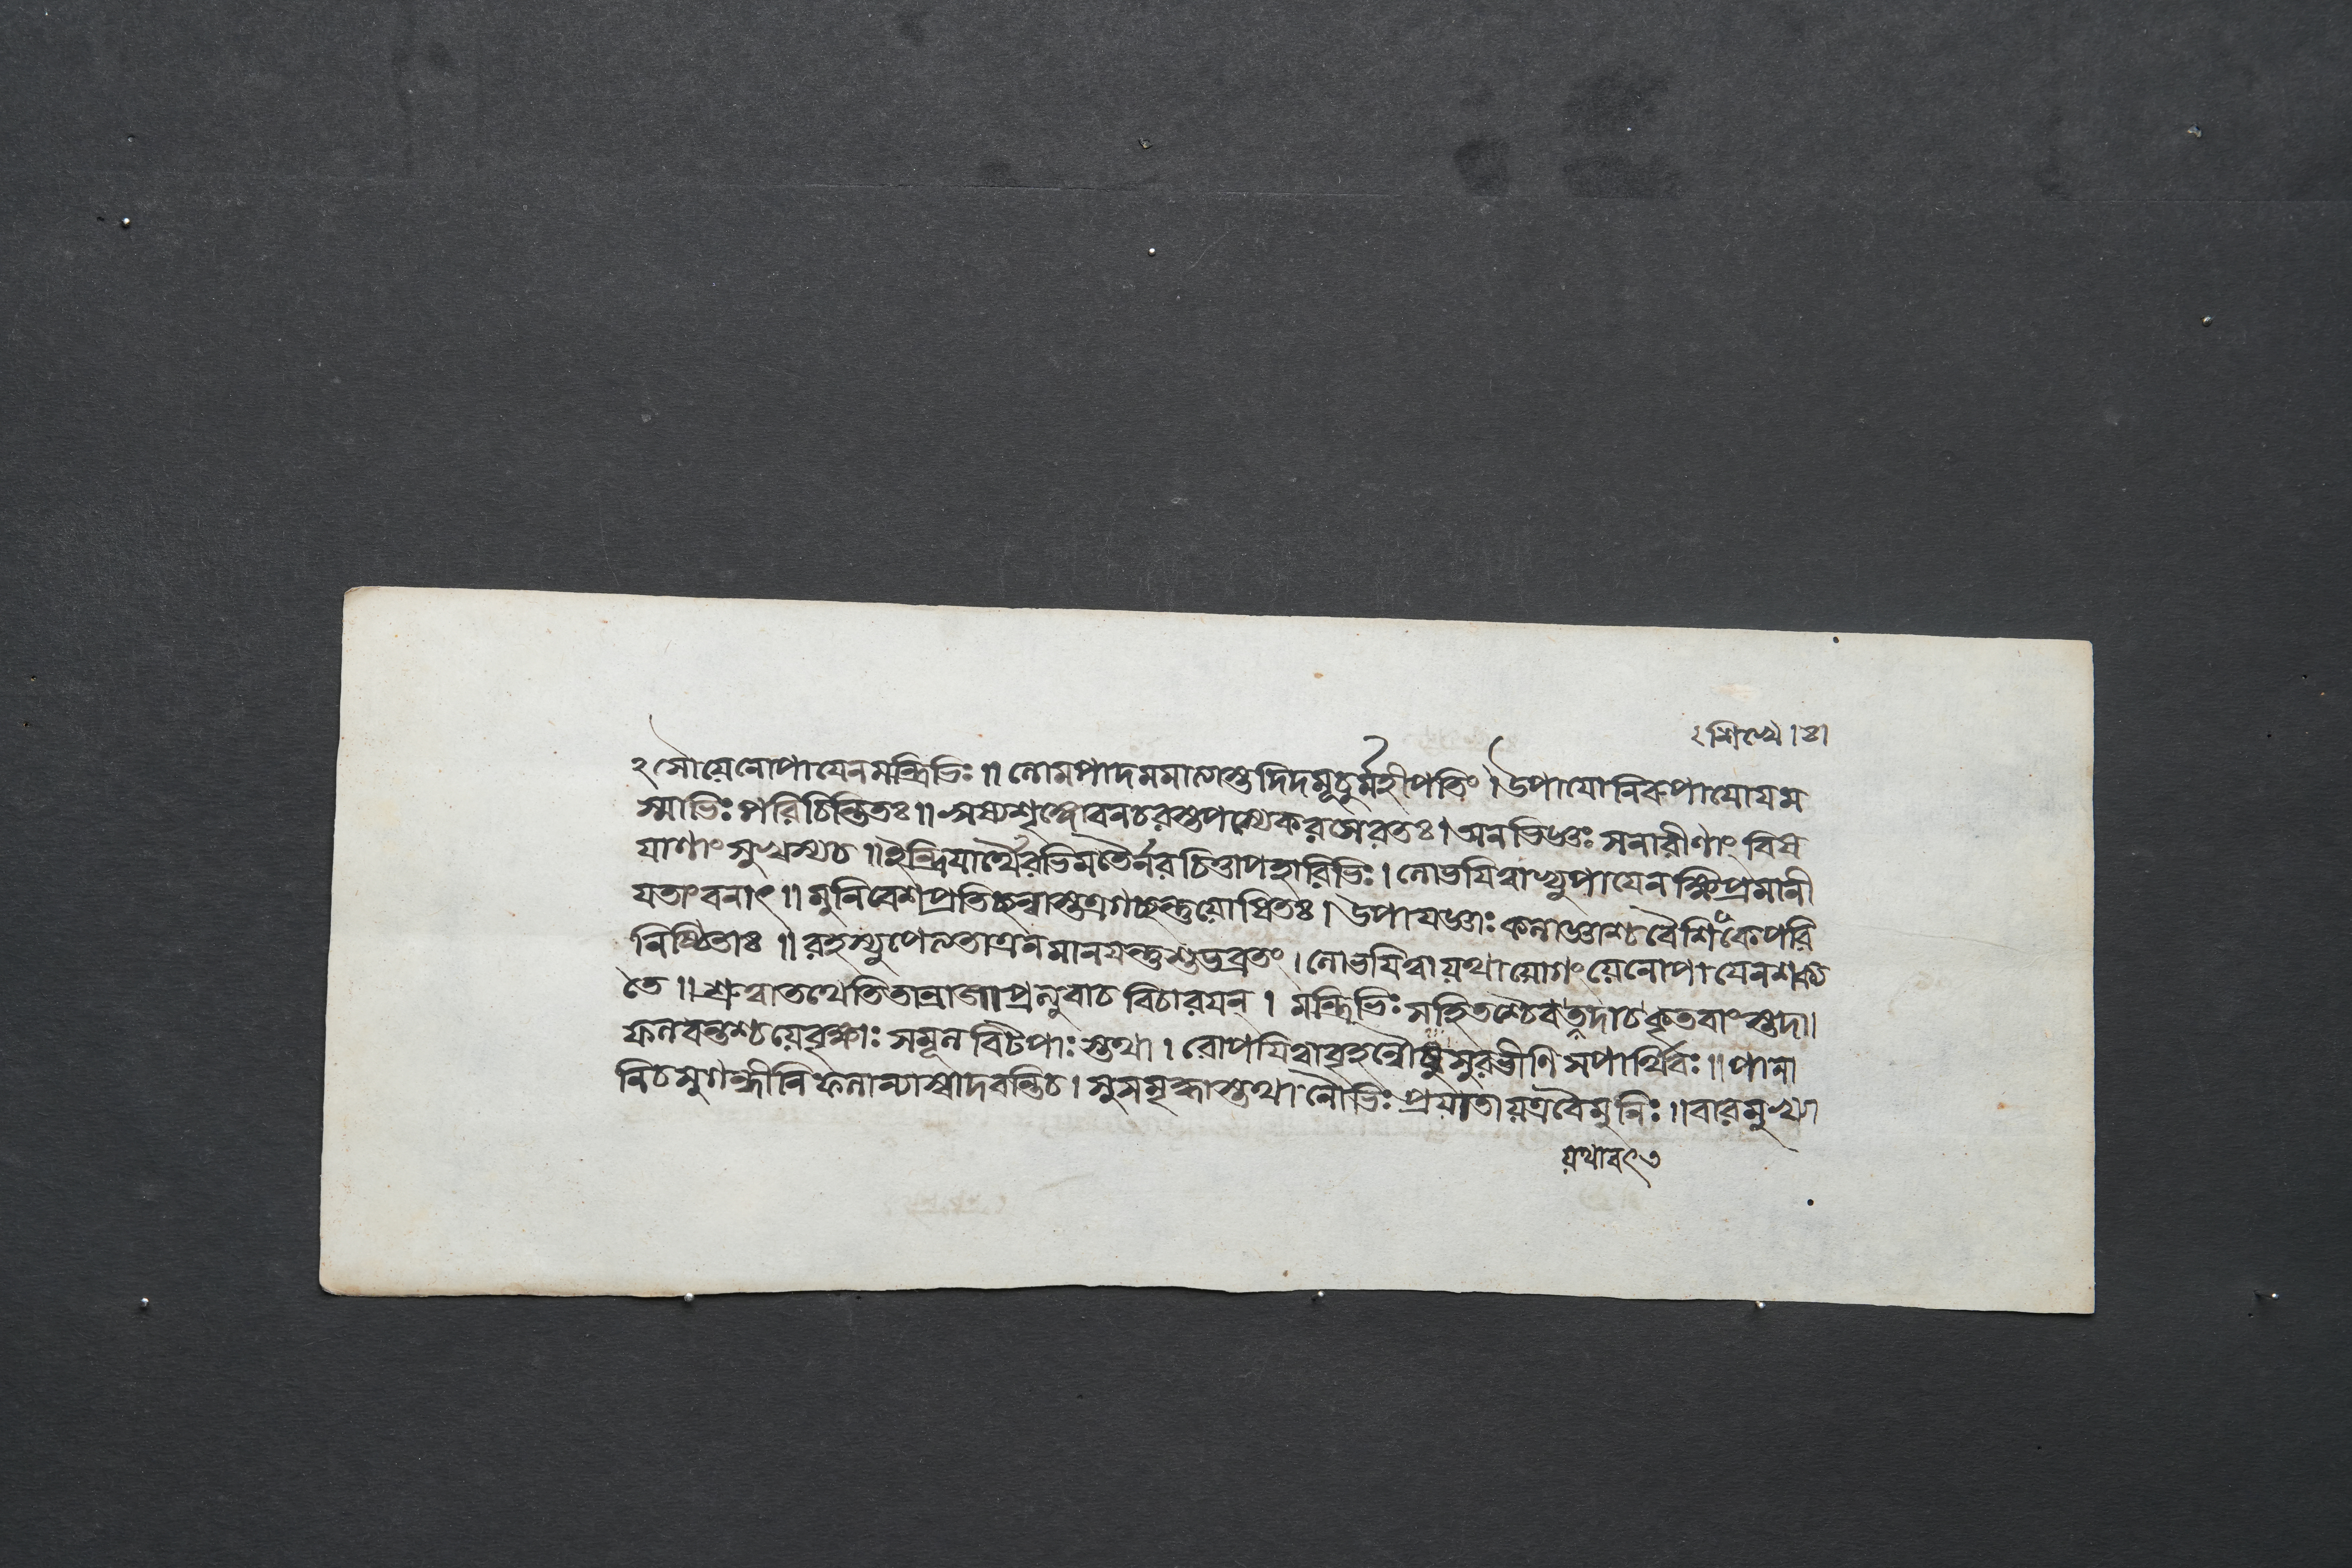 ২ শিখ্যে । ৪।
২ সৌয়েনোপায়েনমন্ত্রিভিঃ ॥ লোমপাদমমাত্যাস্তুদিদমূচুর্মহীপতিং । উপায়োনিরুপায়োয়ম
স্মাভিঃ পরিচিন্তিতঃ ॥ ঋষ্যশৃঙ্গোবনচরস্তপস্যেকরসেরতঃ । অনভিজ্ঞঃ সনারীণাং বিষ
য়াণাং সুখস্যচ ॥ ইন্দ্রিয়ার্থৈরভিমতৈর্নরচিত্তাপহারিভিঃ । লোভয়িত্বাভ্যুপায়েনক্ষিপ্রমানী
য়তাং বনাৎ ॥ মুনিবেশপ্রতিচ্ছন্নাস্তত্রগচ্ছন্তুয়োষিতঃ । উপায়জ্ঞাঃ কলাজ্ঞাশ্চবৈশিকেপরি
নিষ্ঠিতাঃ ॥ রহস্যুপেলতাত্রনমানয়ন্তুশুভব্রতং । লোভয়িত্বায়থায়োগং য়েনোপায়েনশক্য
তে ॥ শ্রুত্বাতথেতিতান্রাজাপ্রত্যুবাচ বিচারয়ন্ । মন্ত্রিভিঃ সহিতশ্চৈবতদাচকৃতবাংস্তদা ।
ফলবন্তশ্চয়েবৃক্ষাঃ সমূল বিটপাঃ স্তথা । রোপয়িত্বাবৃহন্নৌষুসুরভীণি সপার্থিবঃ ॥ পানা
নিচসুগন্ধীনিফলান্যাস্বাদবন্তিচ । সুসমৃদ্ধাস্তথানৌভিঃ প্রয়াতায়ত্রবৈমুনিঃ ॥ বারমুখ্যা
য়থাবৎ ৩